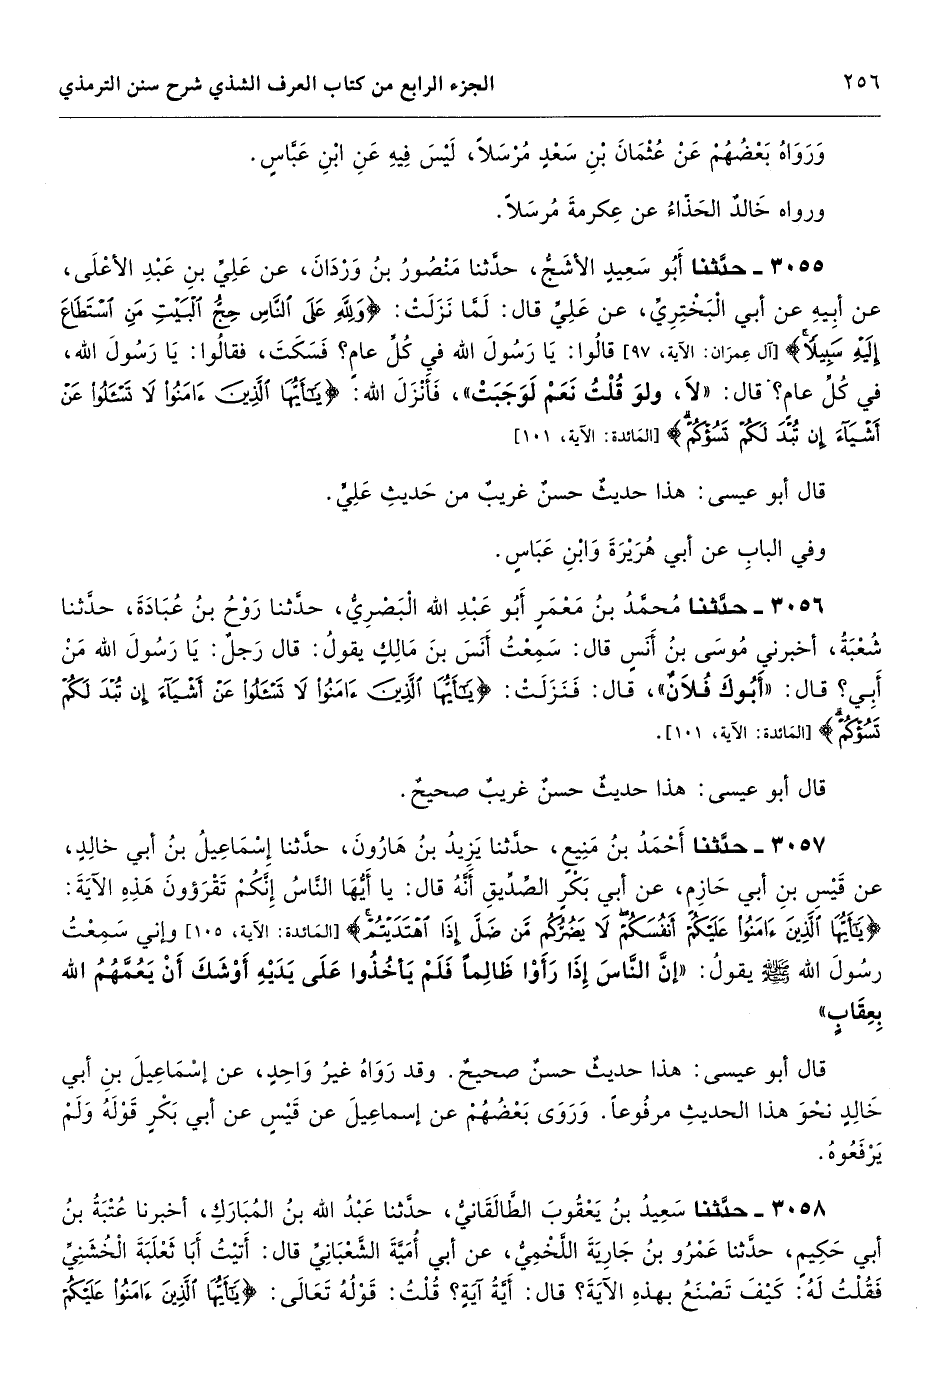 ٢٥٦ الجزء الرابع من كتاب العرف الشذي شرح سنن الترمذي
وَرَوَاهُ بَعْضُهُمْ عَنْ عُثْمَانَ بْنِ سَعْدٍ مُرْسَلاً، لَيْسَ فِيهِ عَنِ ابْنِ عَبَّاسٍ.
ورواه خَالدٌ الحَذّاءُ عن عِكرمةَ مُرسَلاً.
٣٠٥٥ ـ حدَّثنا أَبُو سَعِيدٍ الأشَجُّ، حدَّثنا مَنْصُورُ بنُ وَرْدَانَ، عن عَلِيِّ بنِ عَبْدِ الأعْلَى،
عن أبِيهِ عن أبي الْبَخْتِرِيِّ، عن عَلِيٍّ قال: لَمَّا نَزَلَتْ: ﴿وَلِلَّهِ عَلَى ٱلنَّاسِ حِجُّ ٱلْبَيْتِ مَنِ ٱسْتَطَاعَ
إِلَيْهِ سَبِيلًا﴾ [آل عِمرَان: الآية، ٩٧] قالُوا: يَا رَسُولَ الله في كُلِّ عامٍ؟ فَسَكَتَ، فقالُوا: يَا رَسُولَ الله،
في كُلِّ عامٍ؟ قال: «لاَ، ولوَ قُلْتُ نَعَمْ لَوَجَبَتْ»، فَأَنْزَلَ الله: ﴿يَٰٓأَيُّهَا ٱلَّذِينَ ءَامَنُوا۟ لَا تَسْـَٔلُوا۟ عَنْ
أَشْيَآءَ إِن تُبْدَ لَكُمْ تَسُؤْكُمْ﴾ [المَائدة: الآية، ١٠١]
قال أبو عيسى: هذا حديثٌ حسنٌ غريبٌ من حَديثِ عَلِيٍّ.
وفي البابِ عن أبي هُرَيْرَةَ وَابْنِ عَبَاسٍ.
٣٠٥٦ ـ حدَّثنا مُحمَّدُ بنُ مَعْمَرٍ أَبُو عَبْدِ الله الْبَصْرِيُّ، حدَّثنا رَوْحُ بنُ عُبَادَةَ، حدَّثنا
شُعْبَةُ، أخبرني مُوسَى بنُ أَنَسٍ قال: سَمِعْتُ أَنَسَ بنَ مَالِكٍ يقولُ: قال رَجلٌ: يَا رَسُولَ الله مَنْ
أَبِي؟ قال: «أَبُوكَ فُلاَنٌ»، قال: فَنَزَلَتْ: ﴿يَٰٓأَيُّهَا ٱلَّذِينَ ءَامَنُوا۟ لَا تَسْـَٔلُوا۟ عَنْ أَشْيَآءَ إِن تُبْدَ لَكُمْ
تَسُؤْكُمْ﴾ [المَائدة: الآية، ١٠١].
قال أبو عيسى: هذا حديثٌ حسنٌ غريبٌ صحيحٌ.
٣٠٥٧ ـ حدَّثنا أَحْمَدُ بنُ مَنِيعٍ، حدَّثنا يَزِيدُ بنُ هَارُونَ، حدَّثنا إسْمَاعِيلُ بنُ أبي خالِدٍ،
عن قَيْسِ بنِ أبي حَازِمٍ، عن أبي بَكْرٍ الصِّدِّيقِ أَنَّهُ قال: يا أَيُّهَا النَّاسُ إنَّكُمْ تَقْرَؤونَ هَذِهِ الآيَةَ:
﴿يَٰٓأَيُّهَا ٱلَّذِينَ ءَامَنُوا۟ عَلَيْكُمْ أَنفُسَكُمْ لَا يَضُرُّكُم مَّن ضَلَّ إِذَا ٱهْتَدَيْتُمْ﴾ [المَائدة: الآية، ١٠٥] وإني سَمِعْتُ
رسُولَ الله ﷺ يقولُ: «إنَّ النَّاسَ إذَا رَأَوْا ظَالِماً فَلَمْ يَأخُذُوا عَلَى يَدَيْهِ أَوْشَكَ أَنْ يَعُمَّهُمُ الله
بِعِقَابٍ»
قال أبو عيسى: هذا حديثٌ حسنٌ صحيحٌ. وقد رَوَاهُ غيرُ وَاحِدٍ، عن إسْمَاعِيلَ بنِ أبي
خَالِدٍ نحْوَ هذا الحديثِ مرفُوعاً. وَرَوَى بَعْضُهُمْ عن إسماعيلَ عن قَيْسٍ عن أبي بَكْرٍ قَوْلَهُ وَلَمْ
يَرْفَعُوهُ.
٣٠٥٨ ـ حدَّثنا سَعِيدُ بنُ يَعْقُوبَ الطَّالَقَانيُّ، حدَّثنا عَبْدُ الله بنُ المُبَارَكِ، أخبرنا عُتْبَةُ بنُ
أبي حَكِيمٍ، حدَّثنا عَمْرُو بنُ جَارِيَةَ اللَّخْمِيُّ، عن أبي أُمَيَّةَ الشَّعْبَانِيِّ قال: أَتيْتُ أَبَا ثَعْلَبَةَ الْخُشَنِيَّ
فَقُلْتُ لَهُ: كَيْفَ تَصْنَعُ بهذِهِ الآيَةِ؟ قال: أَيَّةُ آيَةٍ؟ قُلْتُ: قَوْلُهُ تَعَالَى: ﴿يَٰٓأَيُّهَا ٱلَّذِينَ ءَامَنُوا۟ عَلَيْكُمْ